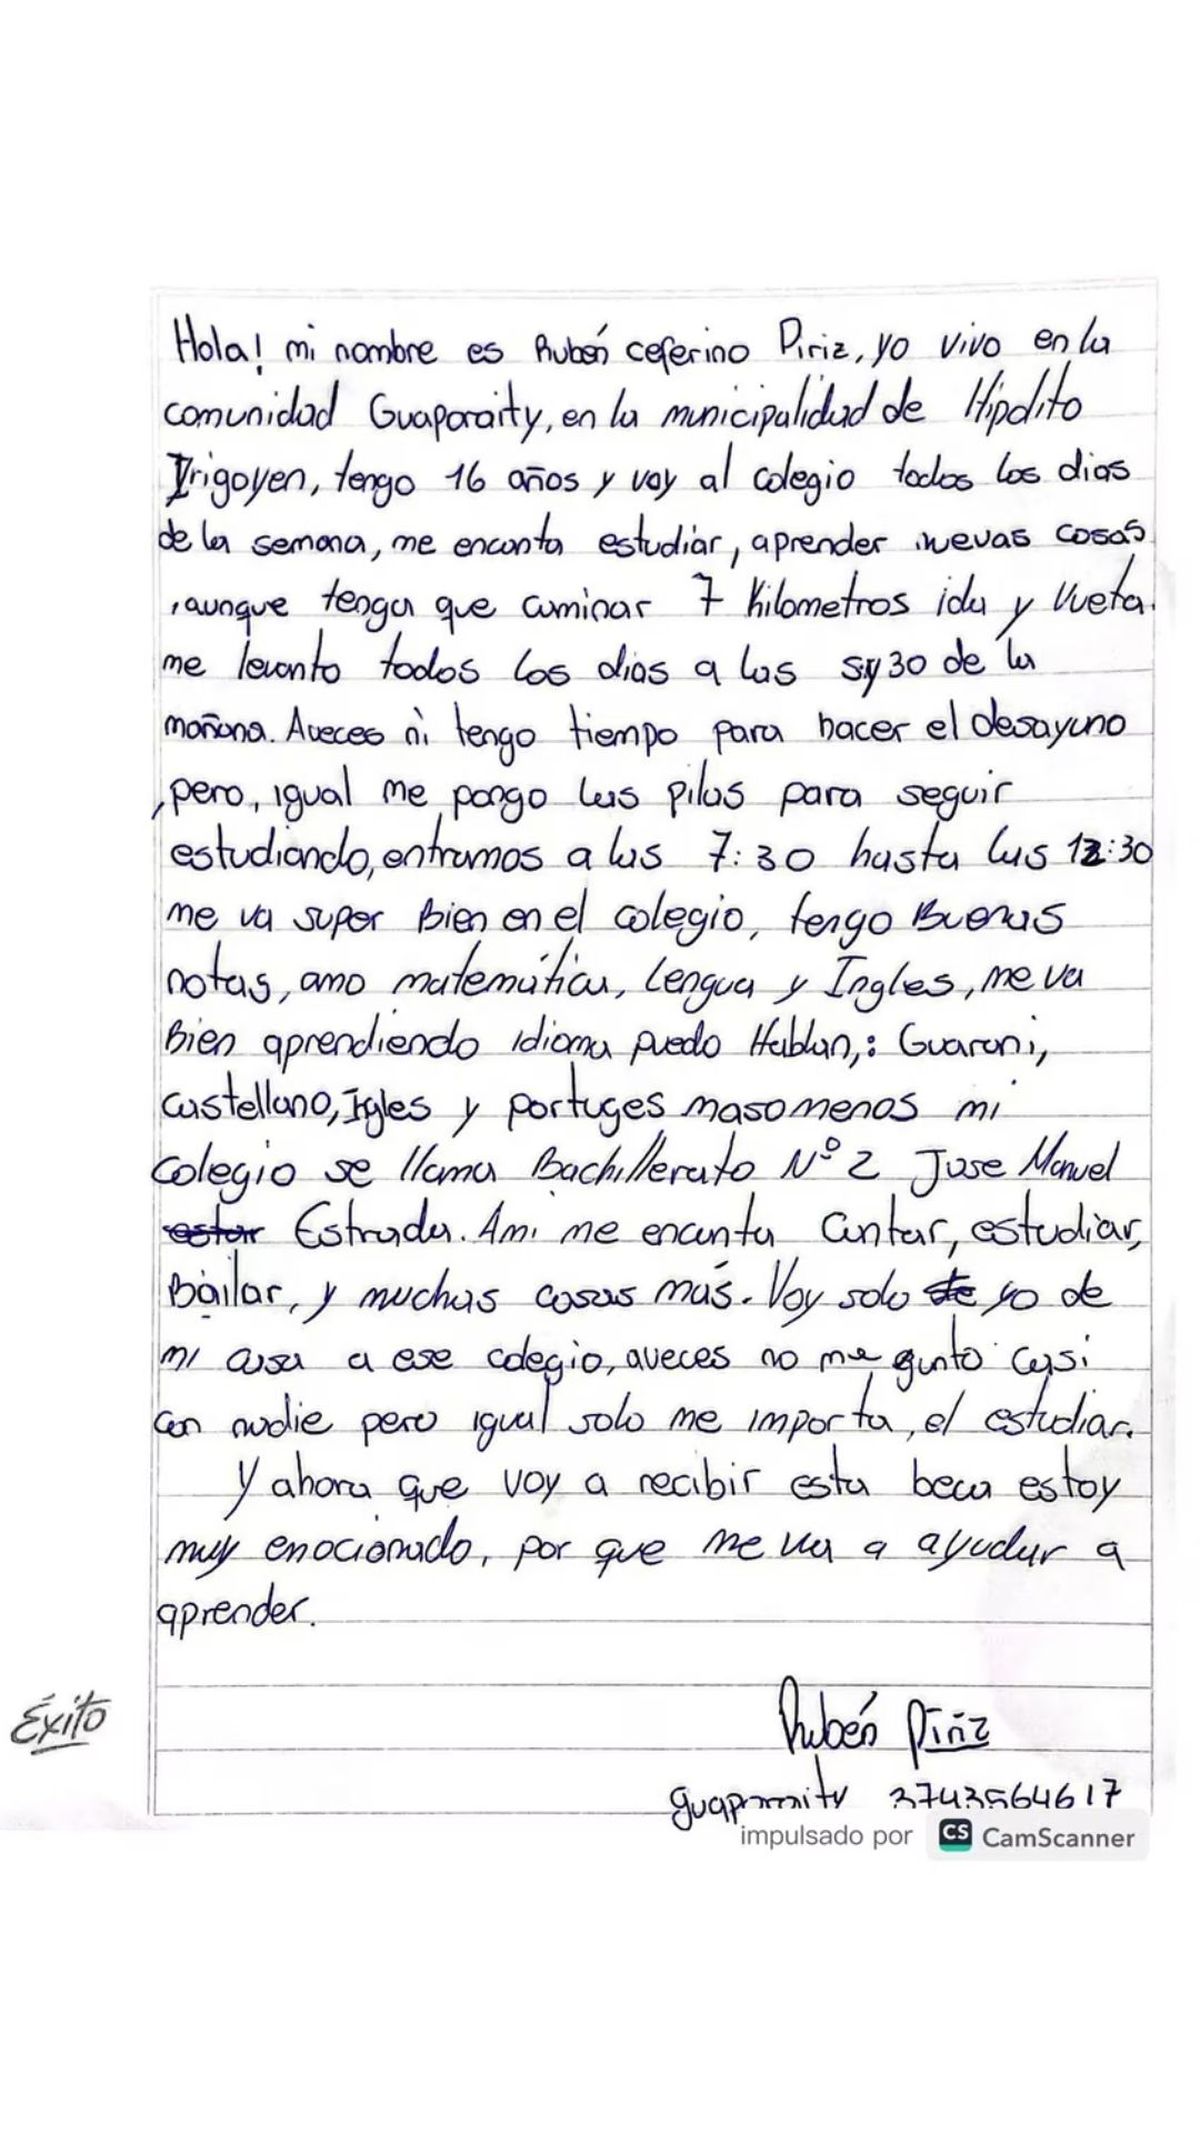 Hola! mi nombre es Rubén ceferino Piriz, yo vivo en la
comunidad Guaporaity, en la municipalidad de Hipolito
Irigoyen, tengo 16 años y voy al colegio todos los dias
de la semana, me encanta estudiar, aprender nuevas cosas
, aunque tenga que caminar 7 Kilometros ida y vueta.
me levanto todos los dias a las 5y30 de la
mañana. Aveces ni tengo tiempo para hacer el desayuno
, pero, igual me pongo las pilas para seguir
estudiando, entramos a las 7:30 hasta las 12:30
me va super Bien en el colegio, tengo Buenas
notas, amo matemática, Lengua y Ingles, me va
Bien aprendiendo idioma puedo Hablan,: Guarani,
castellano, Igles y portuges masomenos mi
colegio se llama Bachillerato N° 2 Jose Manuel
estar Estrada. Ami me encanta cantar, estudiar,
Bailar, y muchas cosas más. Voy solo de yo de
mi casa a ese colegio, aveces no me gunto casi
con nadie pero igual solo me importa, el estudiar.
Y ahora que voy a recibir esta beca estoy
muy enocionado, por que me va a ayudar a
aprender.
Éxito
Rubén Piriz
guaporaity 3743564617
impulsado por CS CamScanner